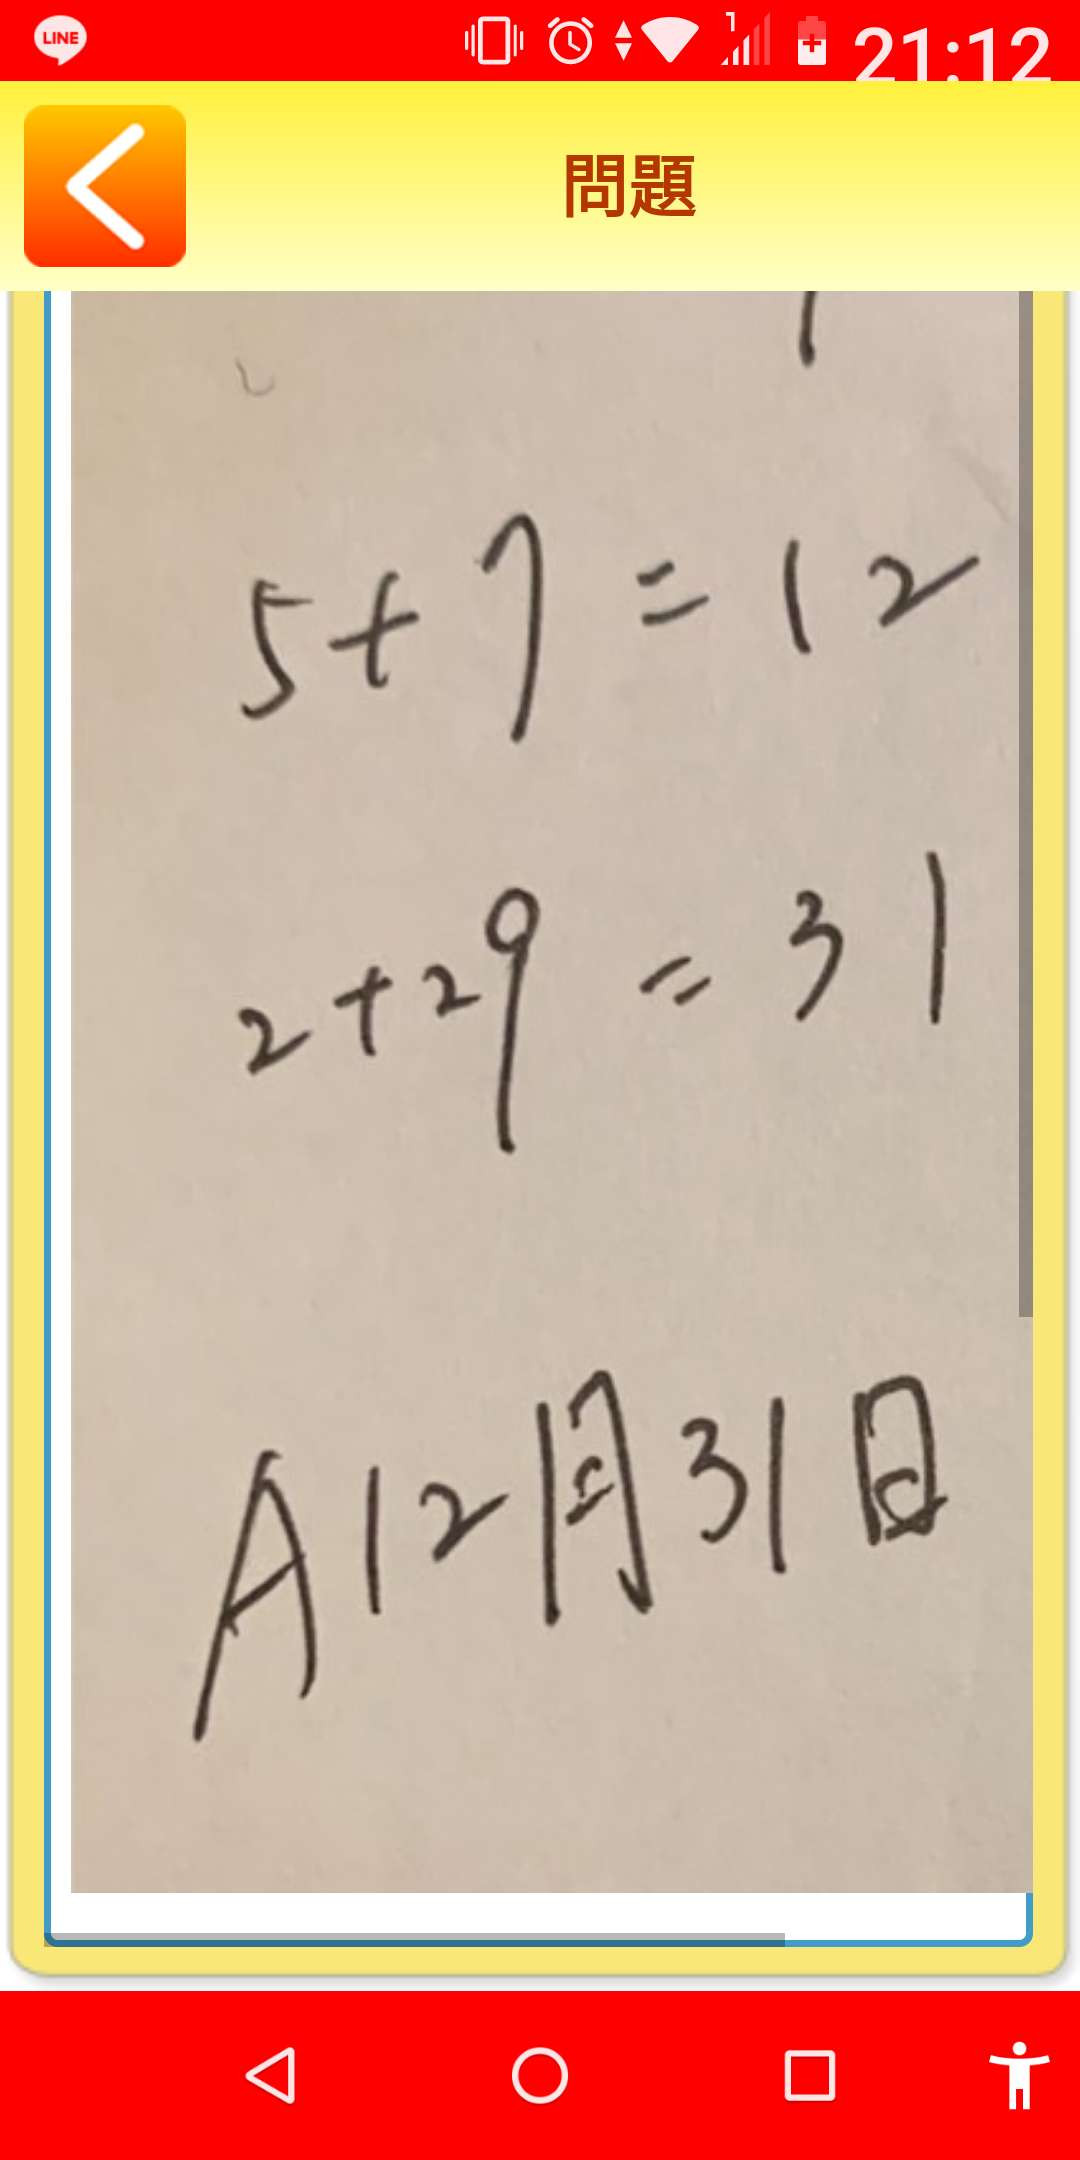 LINE 1 21:12
問題
5+7=12
2+29=31
A12月31日